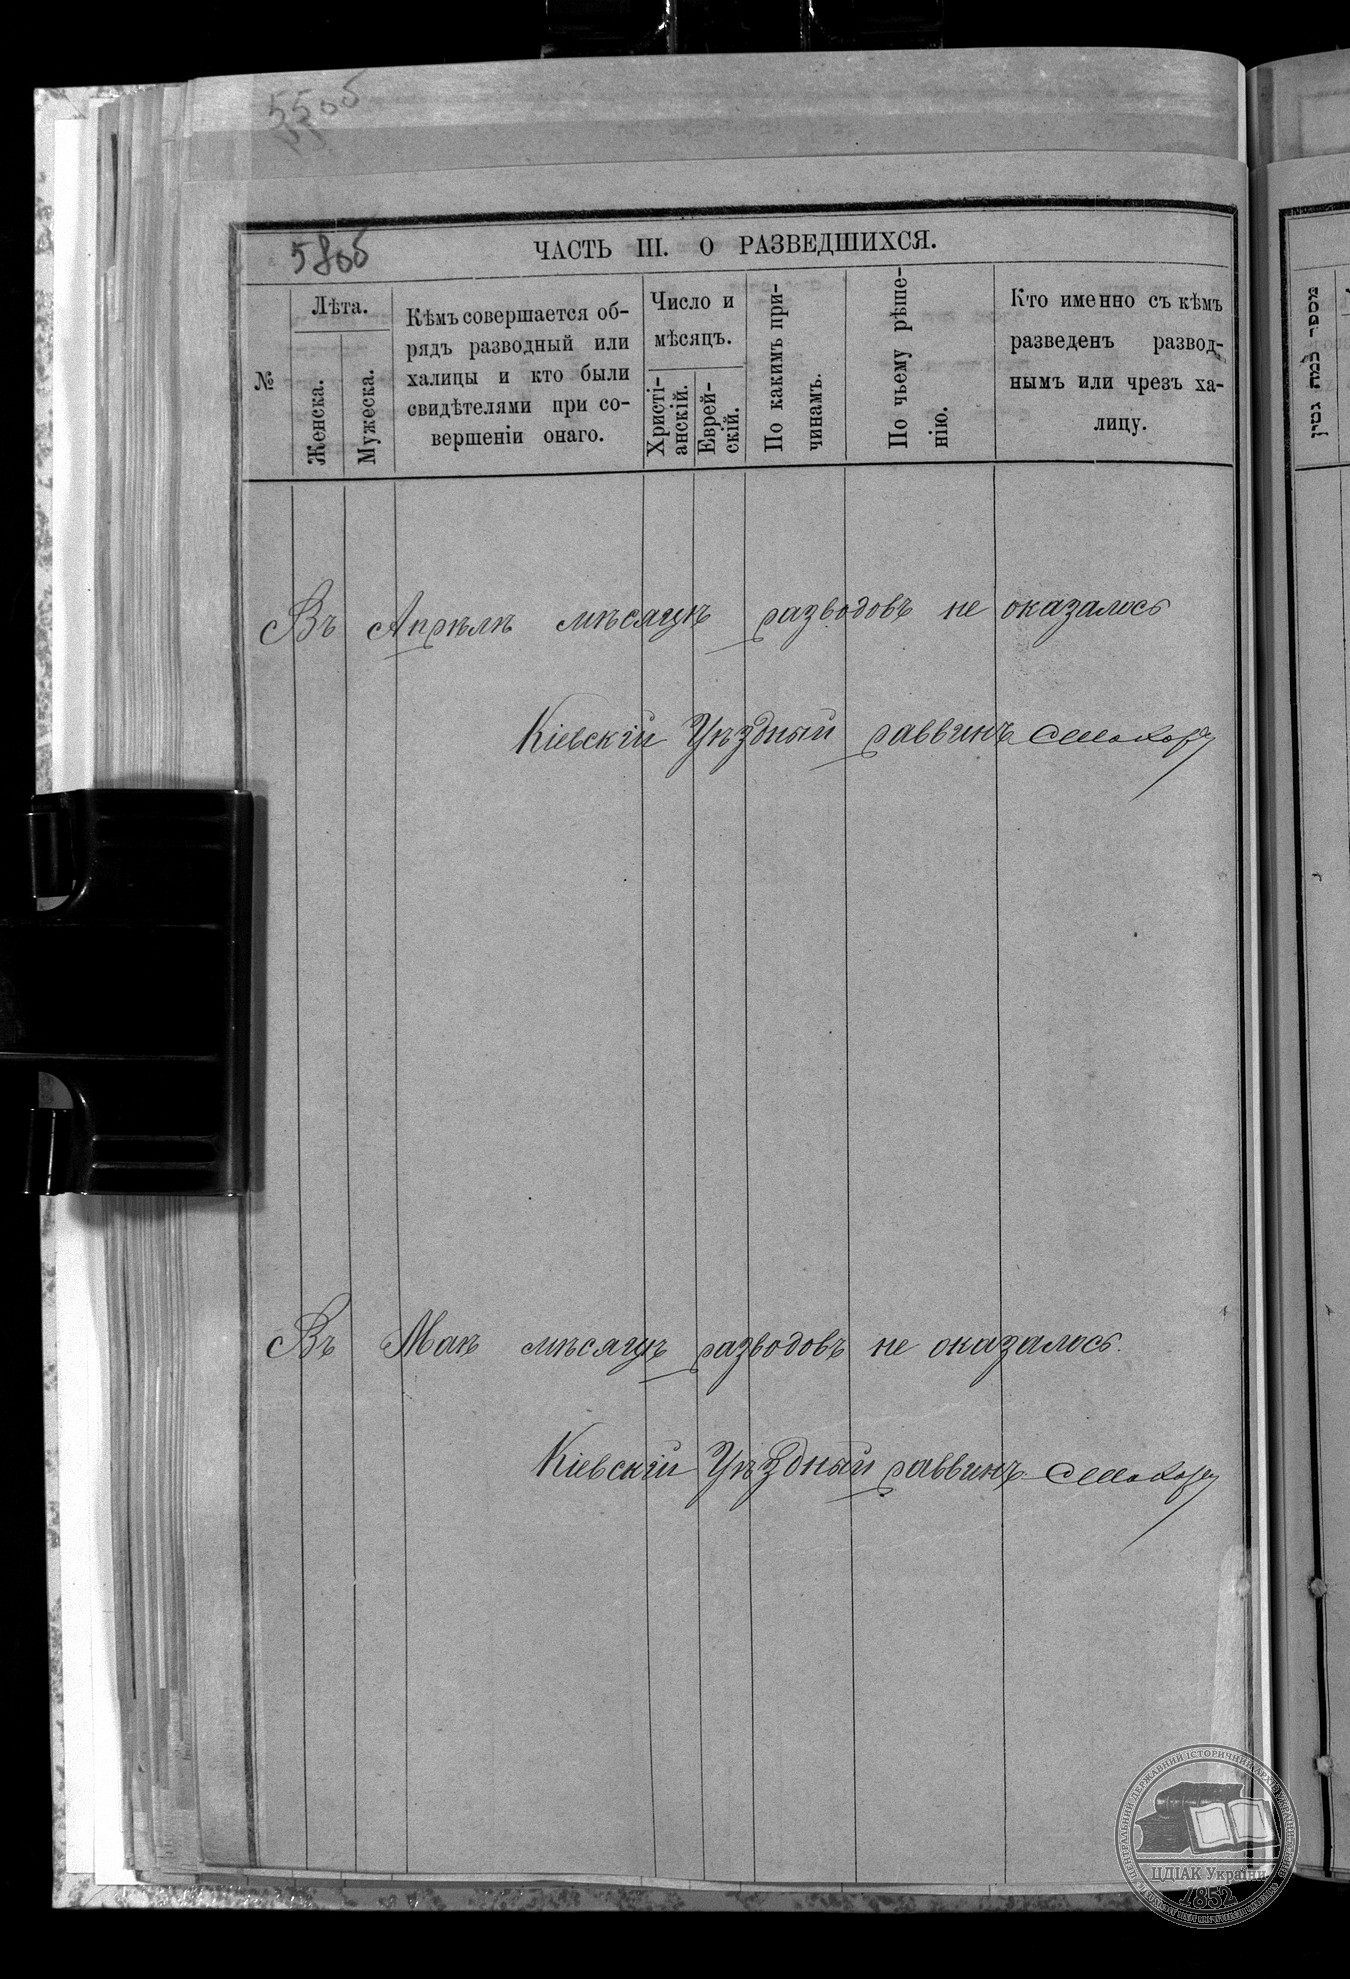 58об
ЧАСТЬ III. О РАЗВЕДШИХСЯ.
№
Лѣта.
Женска.
Мужеска.
Кѣмъ совершается об-
рядъ разводный или
халицы и кто были
свидѣтелями при со-
вершеніи онаго.
Число и
мѣсяцъ.
Христі-
анскій.
Еврей-
скій.
По какимъ при-
чинамъ.
По чьему рѣше-
нію.
Кто именно съ кѣмъ
разведенъ развод-
нымъ или чрезъ ха-
лицу.
Въ Апрѣлѣ мѣсяцѣ разводовъ не оказалось
Кіевскій Уѣздный раввинъ
Въ Маѣ мѣсяцѣ разводовъ не оказалось.
Кіевскій Уѣздный раввинъ
מספר כמה גטין
ЦЕНТРАЛЬНИЙ ДЕРЖАВНИЙ ІСТОРИЧНИЙ АРХІВ УКРАЇНИ
ЦДІАК України
1852